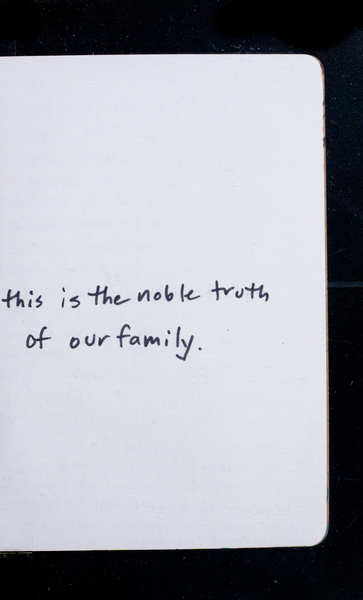 this is the noble truth
of our family.